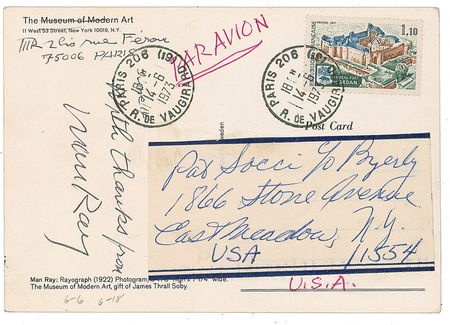 The Museum of Modern Art
11 West 53 Street, New York 10019, N.Y.
MR 2 bis rue Férou
75006 PARIS
PAR AVION
PARIS 206 (19H)
18H
14-6
1973
R. DE VAUGIRARD
PARIS 206
18H
14-6
1973
R. DE VAUGIRARD
1,10
SEDAN
Post Card
With thanks from
Man Ray
Pat Socci c/o Byerly
1866 Stone Avenue
East Meadow, N.Y.
USA 11554
U.S.A.
Man Ray: Rayograph (1922) Photogram, high x 7 1/4" wide.
The Museum of Modern Art, gift of James Thrall Soby.
6-6 6-18